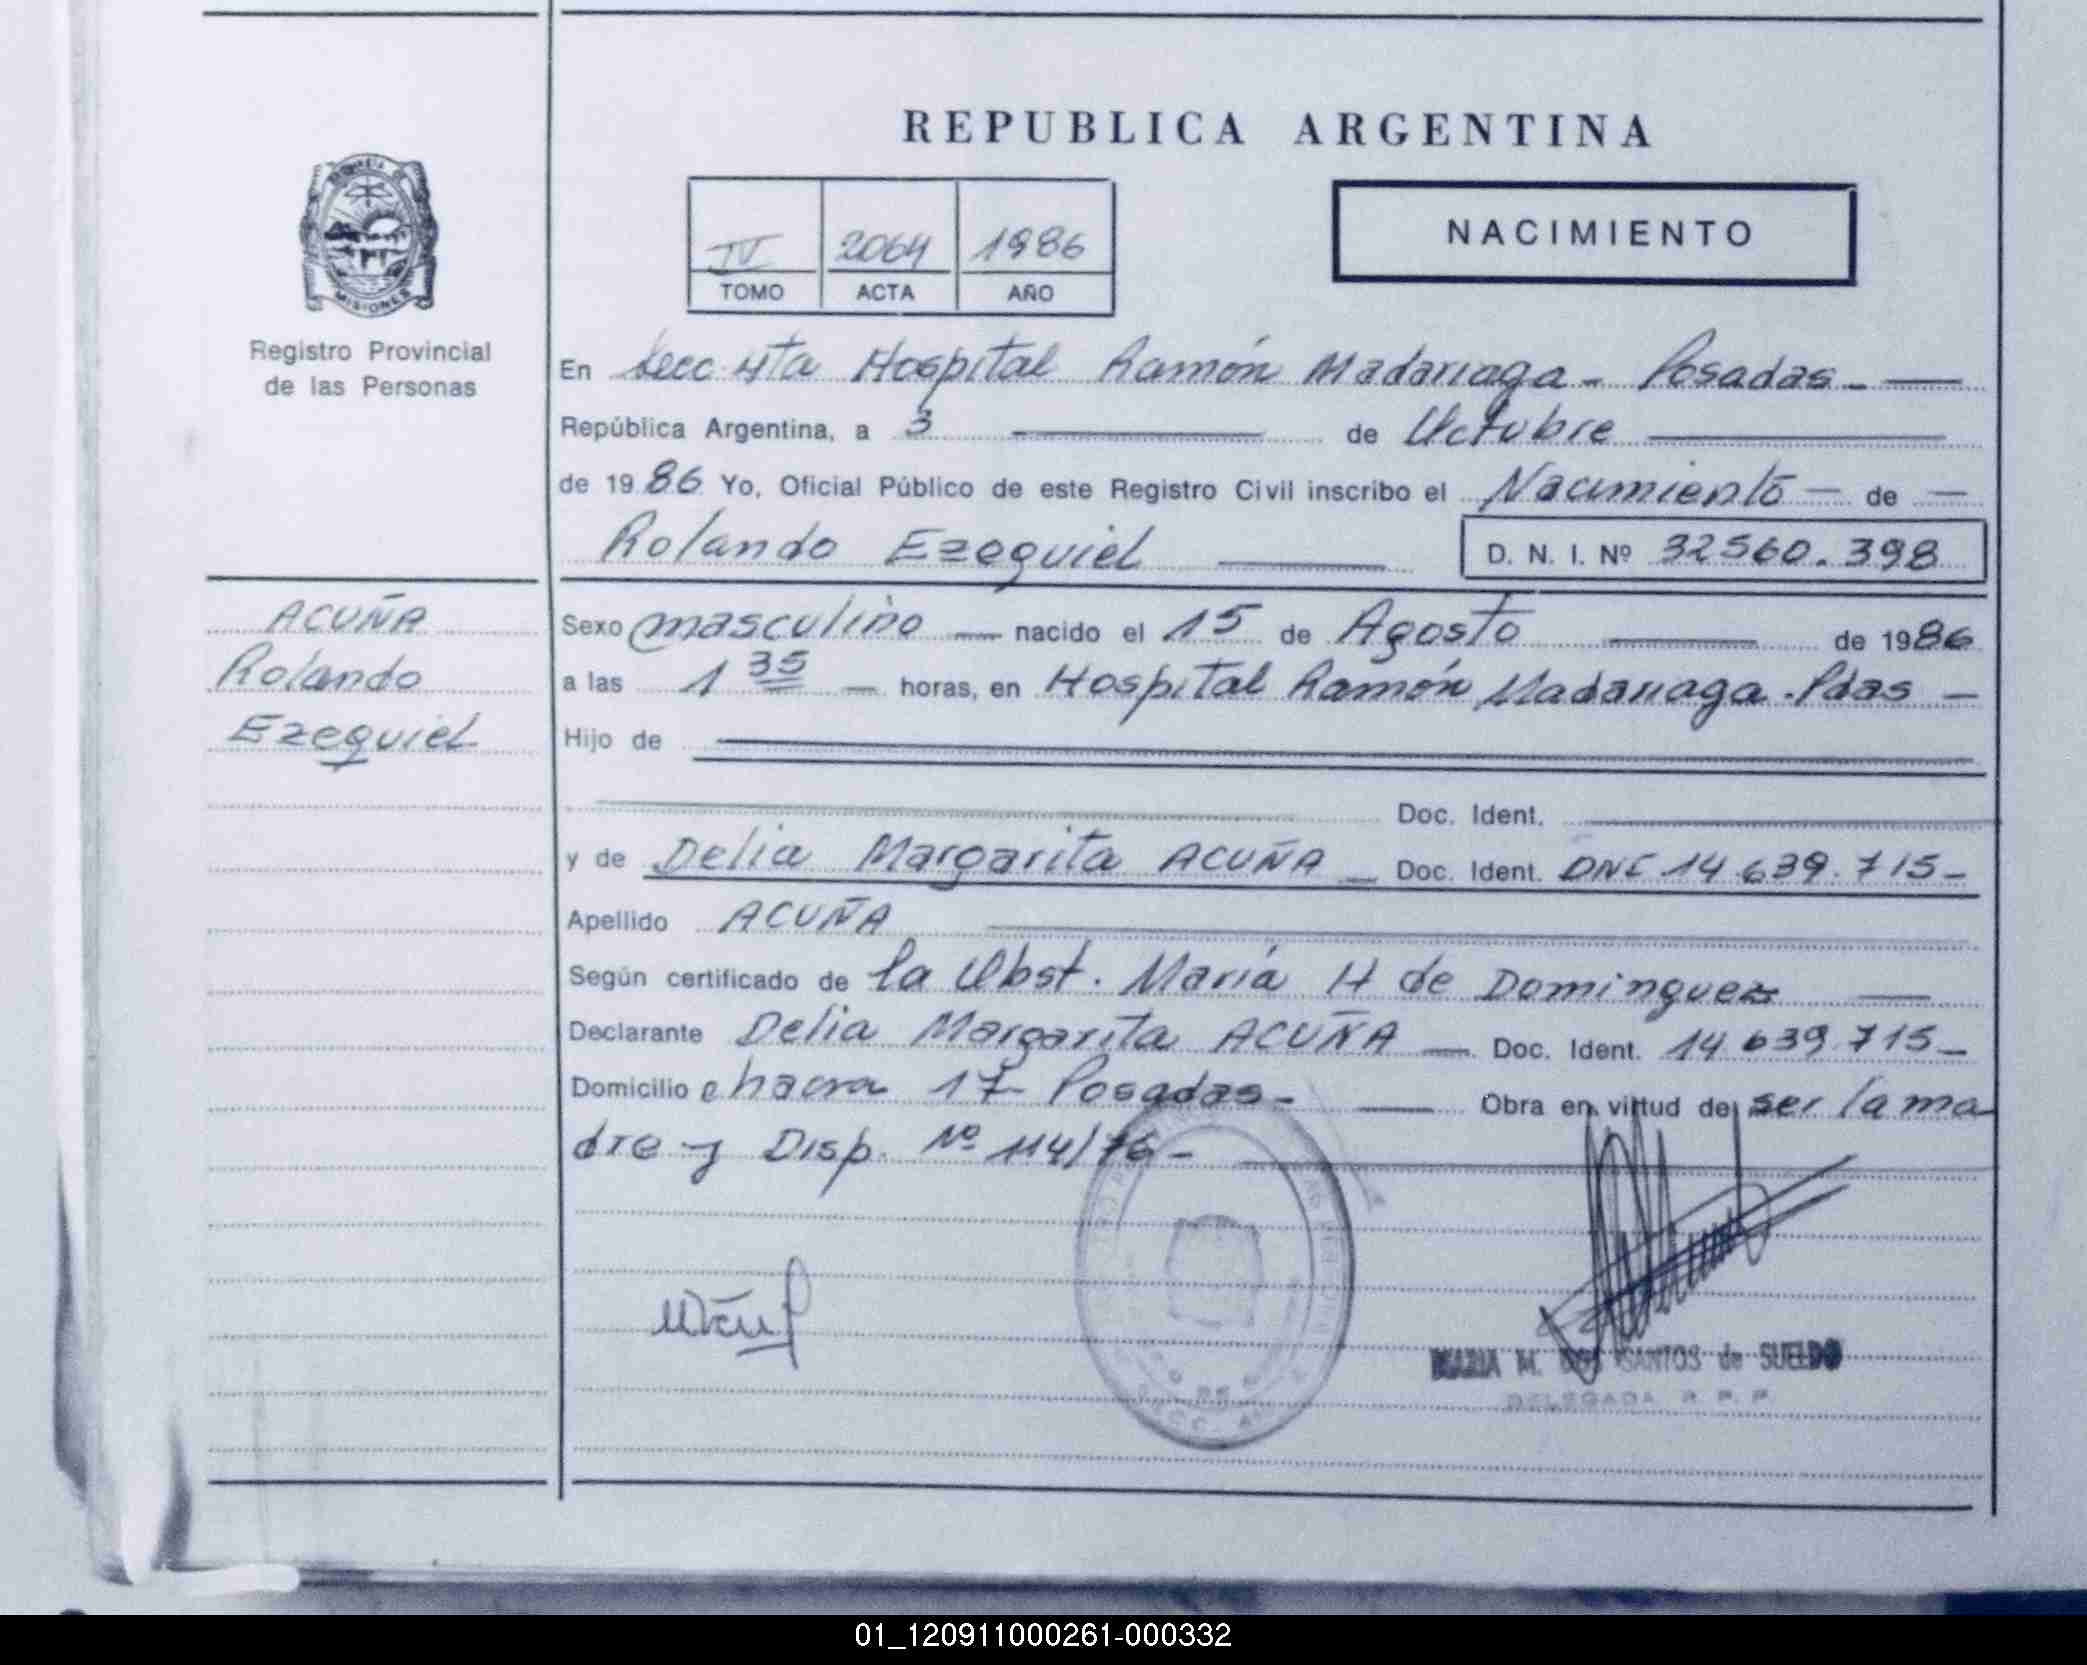 REPUBLICA ARGENTINA
MISIONES
Registro Provincial
de las Personas
IV 2064 1986
TOMO ACTA AÑO
NACIMIENTO
En Secc. 4ta Hospital Ramón Madariaga - Posadas -
República Argentina, a 3 de Octubre
de 1986 Yo, Oficial Público de este Registro Civil inscribo el Nacimiento de
Rolando Ezequiel D. N. I. Nº 32560.398
ACUÑA
Rolando
Ezequiel
Sexo masculino nacido el 15 de Agosto de 1986
a las 1 35 horas, en Hospital Ramón Madariaga - Pdas
Hijo de
Doc. Ident.
y de Delia Margarita ACUÑA Doc. Ident. DNI 14.639.715-
Apellido ACUÑA
Según certificado de la Obst. María H de Dominguez
Declarante Delia Margarita ACUÑA Doc. Ident. 14.639.715-
Domicilio chacra 17- Posadas- Obra en virtud de ser la ma
dre y Disp. Nº 114/76-
MARIA M. DOS SANTOS de SUELDO
DELEGADA R. P. P.
01_120911000261-000332